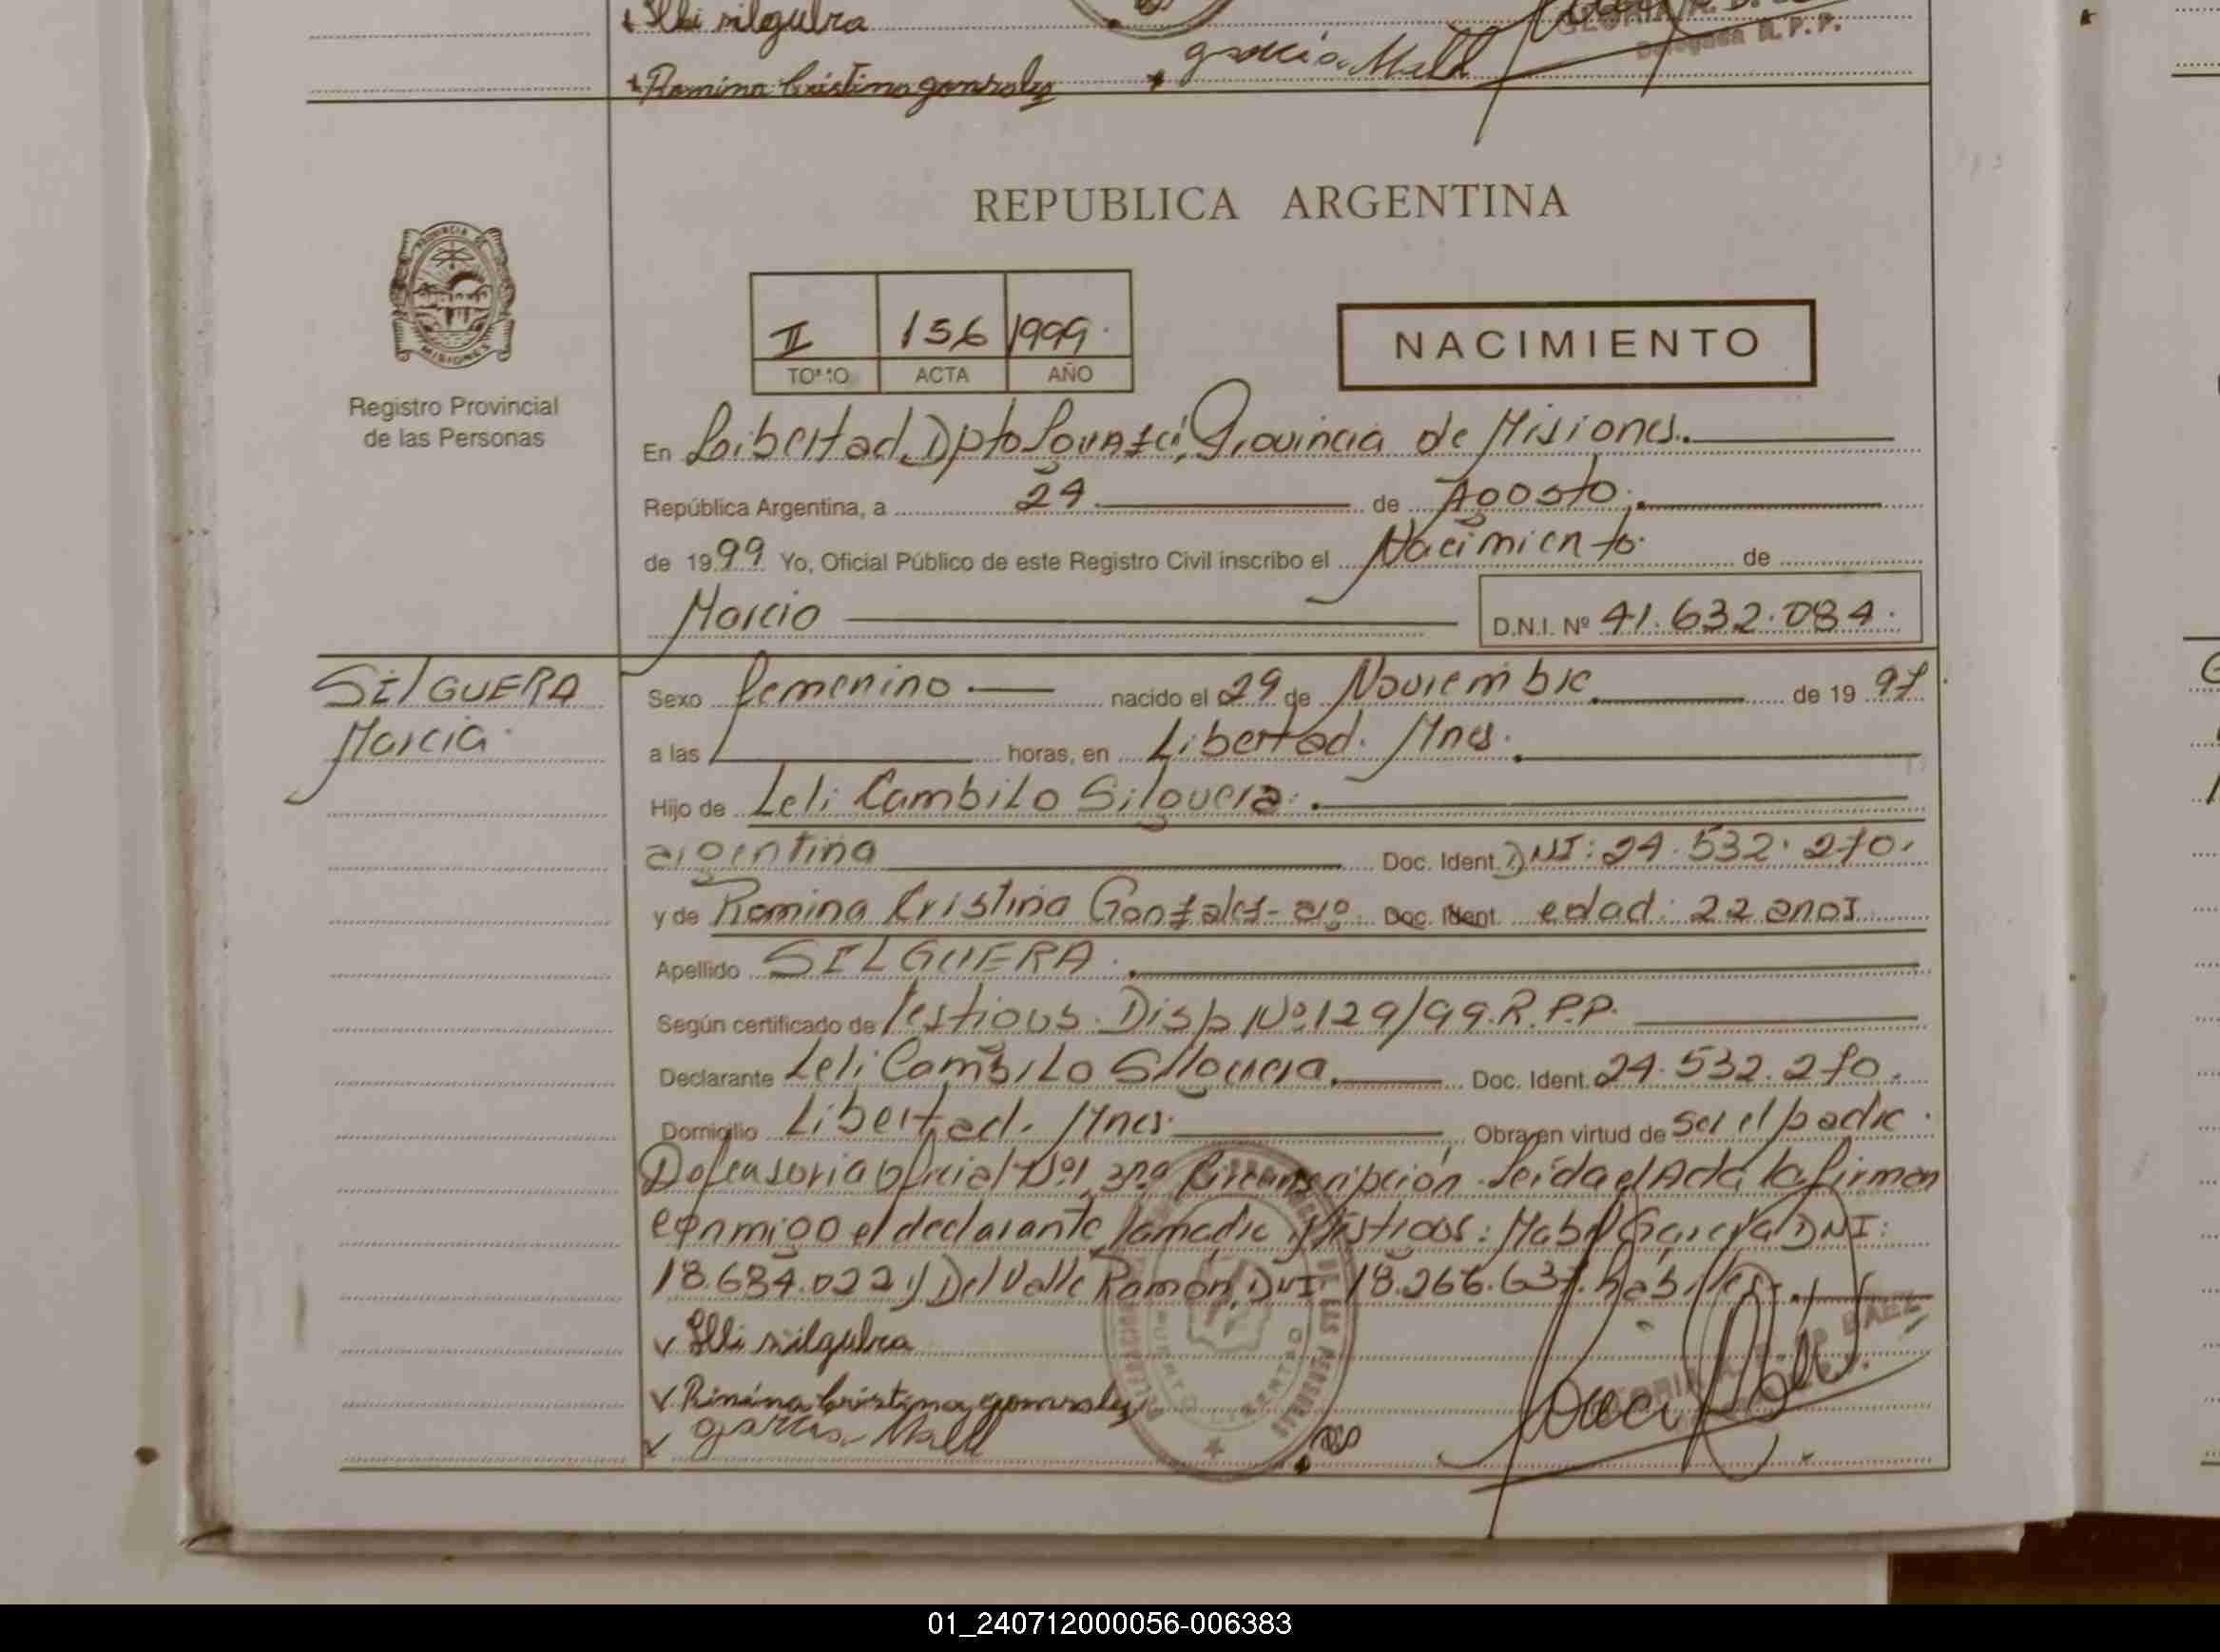 Lli silguera
Romina Cristina gonzales garcia Mabel
Delegada R.P.P.
REPUBLICA ARGENTINA
PROVINCIA DE
MISIONES
Registro Provincial
de las Personas
II 156 1999
TOMO ACTA AÑO
NACIMIENTO
En Libertad, Dpto Iguazú, Provincia de Misiones.
República Argentina, a 24 de Agosto.
de 1999 Yo, Oficial Público de este Registro Civil inscribo el Nacimiento de
Marcia
D.N.I. Nº 41.632.084.
SILGUERA
Marcia
Sexo femenino nacido el 29 de Noviembre de 1997
a las horas, en Libertad. Mnes.
Hijo de Leli Cambilo Silguera
argentina Doc. Ident. DNI: 24.532.270.
y de Romina Cristina Gonzales - arg. Doc. Ident. edad: 22 anos
Apellido SILGUERA.
Según certificado de Testigos. Disp Nº 129/99. R.P.P.
Declarante Leli Cambilo Silguera. Doc. Ident. 24.532.270.
Domicilio Libertad. Mnes. Obra en virtud de ser el padre.
Defensoria Oficial Nº 1, 3ra Circunscripción. Leída el Acta la firman
conmigo el declarante la madre y testigos: Mabel García DNI:
18.684.022 y Del Valle Ramón, DNI: 18.266.637. hábiles.
Lli silguera
Rimina Cristina gonzales
garcia Mabel
01_240712000056-006383